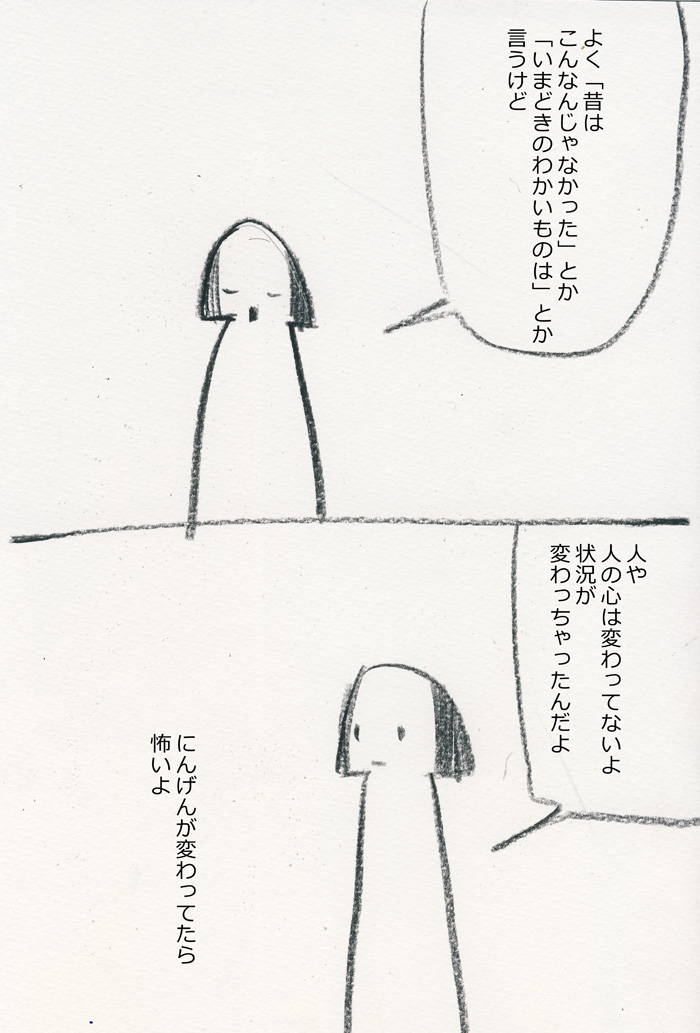 よく「昔は
こんなんじゃなかった」とか
「いまどきのわかいものは」とか
言うけど
人や
人の心は変わってないよ
状況が
変わっちゃったんだよ
にんげんが変わってたら
怖いよ